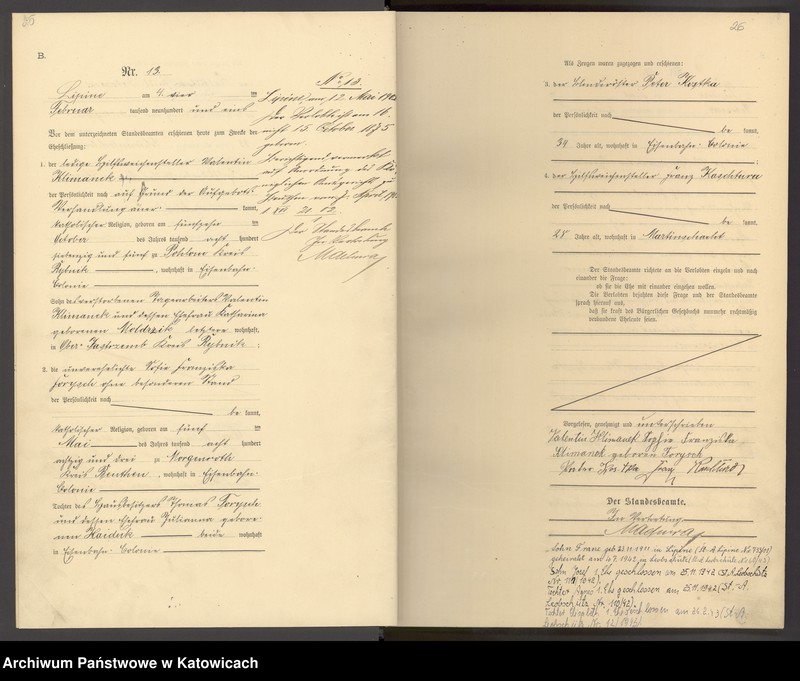 25
B.
Nr. 13.
Lipine am 4. vier ten
Februar tausend neunhundert und eins
Vor dem unterzeichneten Standesbeamten erschienen heute zum Zweck der
Eheschließung:
1. der ledige Hilfsweichensteller Valentin
Klimanek
der Persönlichkeit nach auf Grund der Aufgebots-
Verhandlung aner- kannt,
katholischer Religion, geboren am fünfzehnten
October des Jahres tausend acht hundert
siebenzig und fünf zu Pohlom Kreis
Rybnik, wohnhaft in Eisenbahn-
Colonie
Sohn des verstorbenen Tagearbeiters Valentin
Klimanek und dessen Ehefrau Katharina
geborenen Moldrzik letztere wohnhaft
in Ober-Jastrzemb Kreis Rybnik;
2. die unverehelichte Sofie Franziska
Forysch ohne besonderen Stand
der Persönlichkeit nach
be kannt,
katholischer Religion, geboren am fünften
Mai des Jahres tausend acht hundert
achtzig und drei zu Morgenroth
Kreis Beuthen, wohnhaft in Eisenbahn-
Colonie
Tochter des Hausbesitzers Thomas Forysch
und dessen Ehefrau Julianna gebore-
nen Kaiduk beide wohnhaft
in Eisenbahn-Colonie
No. 13.
Lipine, am 12. Mai
Der Verlobte ist am 16.
nicht 15 October 1875
geboren.
Der Standesbeamte
In Vertretung
26
Als Zeugen waren zugezogen und erschienen:
3. der Peter Kostka
der Persönlichkeit nach
be kannt,
34 Jahre alt, wohnhaft in Eisenbahn-Colonie;
4. der Hilfsweichensteller Franz Koschtura
der Persönlichkeit nach
be kannt,
28 Jahre alt, wohnhaft in Martinschacht
Der Standesbeamte richtete an die Verlobten einzeln und nach
einander die Frage:
ob sie die Ehe mit einander eingehen wollen.
Die Verlobten bejahten diese Frage und der Standesbeamte
sprach hierauf aus,
daß sie kraft des Bürgerlichen Gesetzbuchs nunmehr rechtmäßig
verbundene Eheleute seien.
Vorgelesen, genehmigt und unterschrieben
Valentin Klimanek Sophie Franziska
Klimanek geboren Forysch
Peter Kostka Franz
Der Standesbeamte.
In Vertretung
Sohn Franz geb. 23.11.1911 in Lipine
geheiratet am
Sohn Josef 1. Ehe geschlossen am 25.11.1942 (St. A. Leobschütz
Nr. 110/1942).
Tochter Agnes 1. Ehe geschlossen am 25.11.1942 (St. A.
Leobschütz Nr. 110/42).
Tochter 1. Ehe geschlossen am 26.2.43 (St. A.
Leobschütz Nr. 12/1943)
Archiwum Państwowe w Katowicach